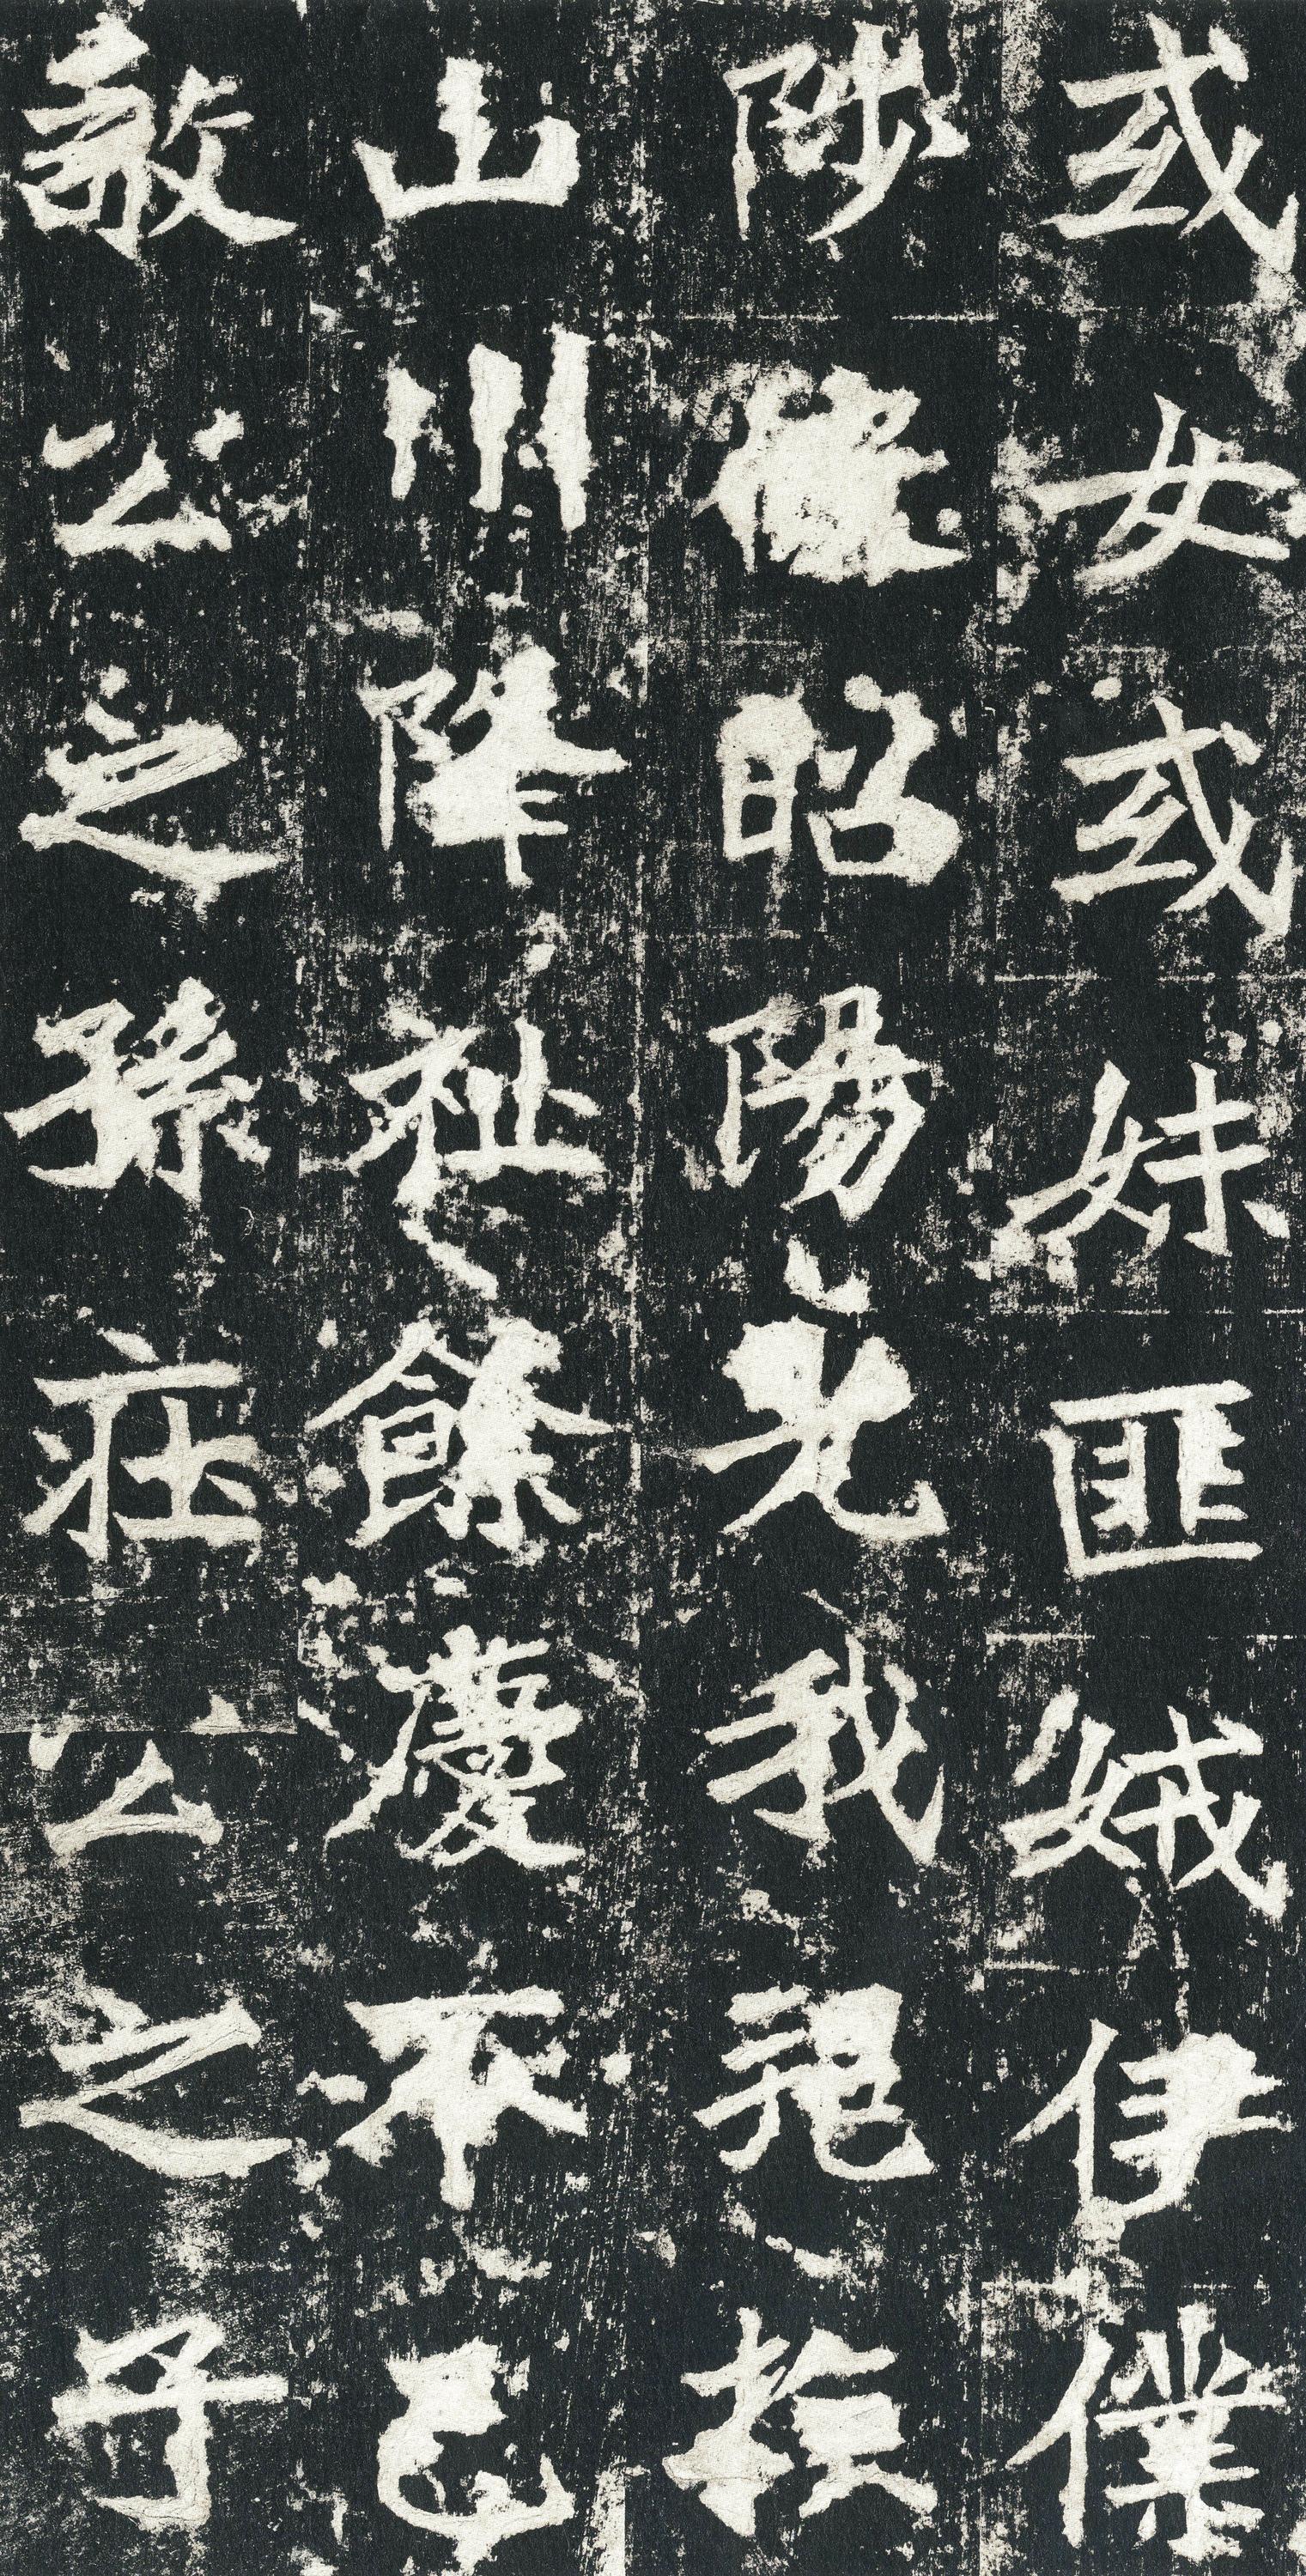 式女式妹匪娀伊僕
陟昭陽光我
山川降祉餘慶不已
敬公之孫莊公之子